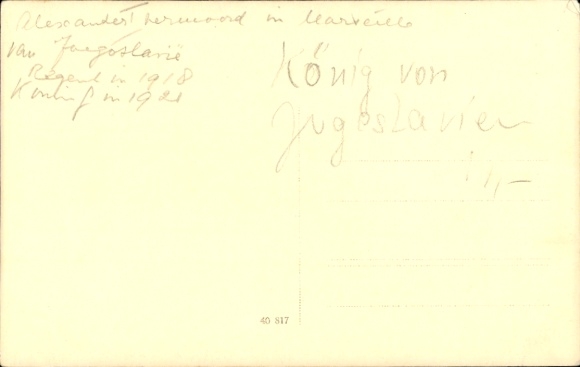 Alexander I vermoord in Marseille
van Juegoslavië
Regent in 1918
Koning in 1921
König von
Jugoslavien
17,-
40 817